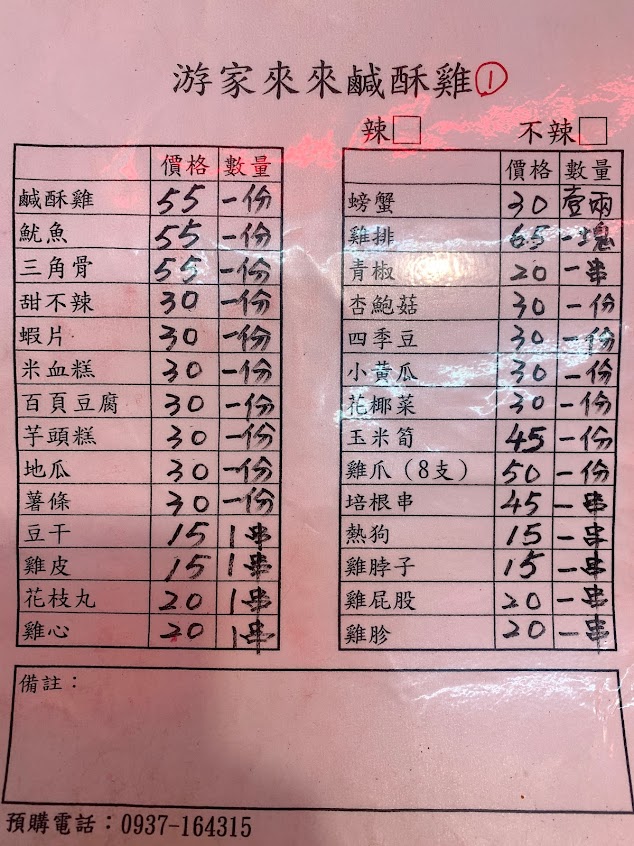 游家來來鹹酥雞①
辣□ 不辣□
價格 數量
鹹酥雞 55 一份
魷魚 55 一份
三角骨 55 一份
甜不辣 30 一份
蝦片 30 一份
米血糕 30 一份
百頁豆腐 30 一份
芋頭糕 30 一份
地瓜 30 一份
薯條 30 一份
豆干 15 1串
雞皮 15 1串
花枝丸 20 1串
雞心 20 1串
價格 數量
螃蟹 30 壹兩
雞排 65 一塊
青椒 20 一串
杏鮑菇 30 一份
四季豆 30 一份
小黃瓜 30 一份
花椰菜 30 一份
玉米筍 45 一份
雞爪（8支） 50 一份
培根串 45 一串
熱狗 15 一串
雞脖子 15 一串
雞屁股 20 一串
雞胗 20 一串
備註：
預購電話：0937-164315